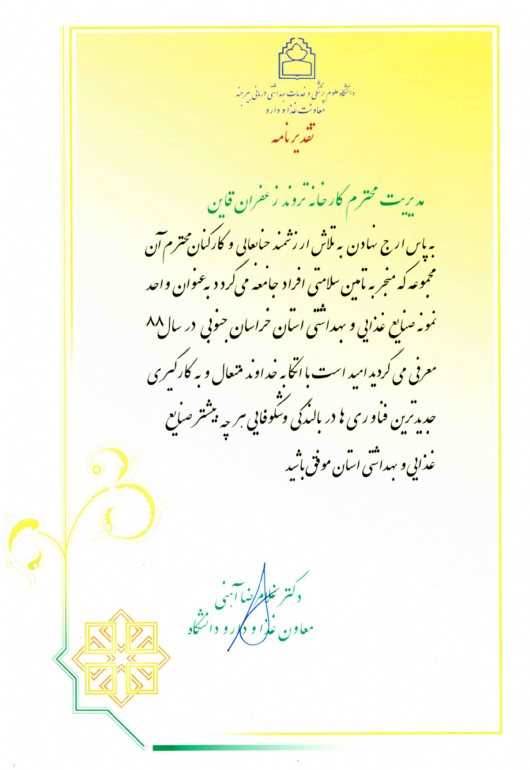 دانشگاه علوم پزشکی و خدمات بهداشتی درمانی بیرجند
معاونت غذا و دارو
تقدیرنامه
مدیریت محترم کارخانه تروند زعفران قاین
به پاس ارج نهادن به تلاش ارزشمند جنابعالی و کارکنان محترم آن
مجموعه که منجر به تامین سلامتی افراد جامعه می گردد به عنوان واحد
نمونه صنایع غذایی و بهداشتی استان خراسان جنوبی در سال ۸۸
معرفی می گردید امید است با اتکا به خداوند متعال و به کارگیری
جدیدترین فناوری ها در بالندگی و شکوفایی هر چه بیشتر صنایع
غذایی و بهداشتی استان موفق باشید
دکتر غلامرضا آهنی
معاون غذا و دارو دانشگاه